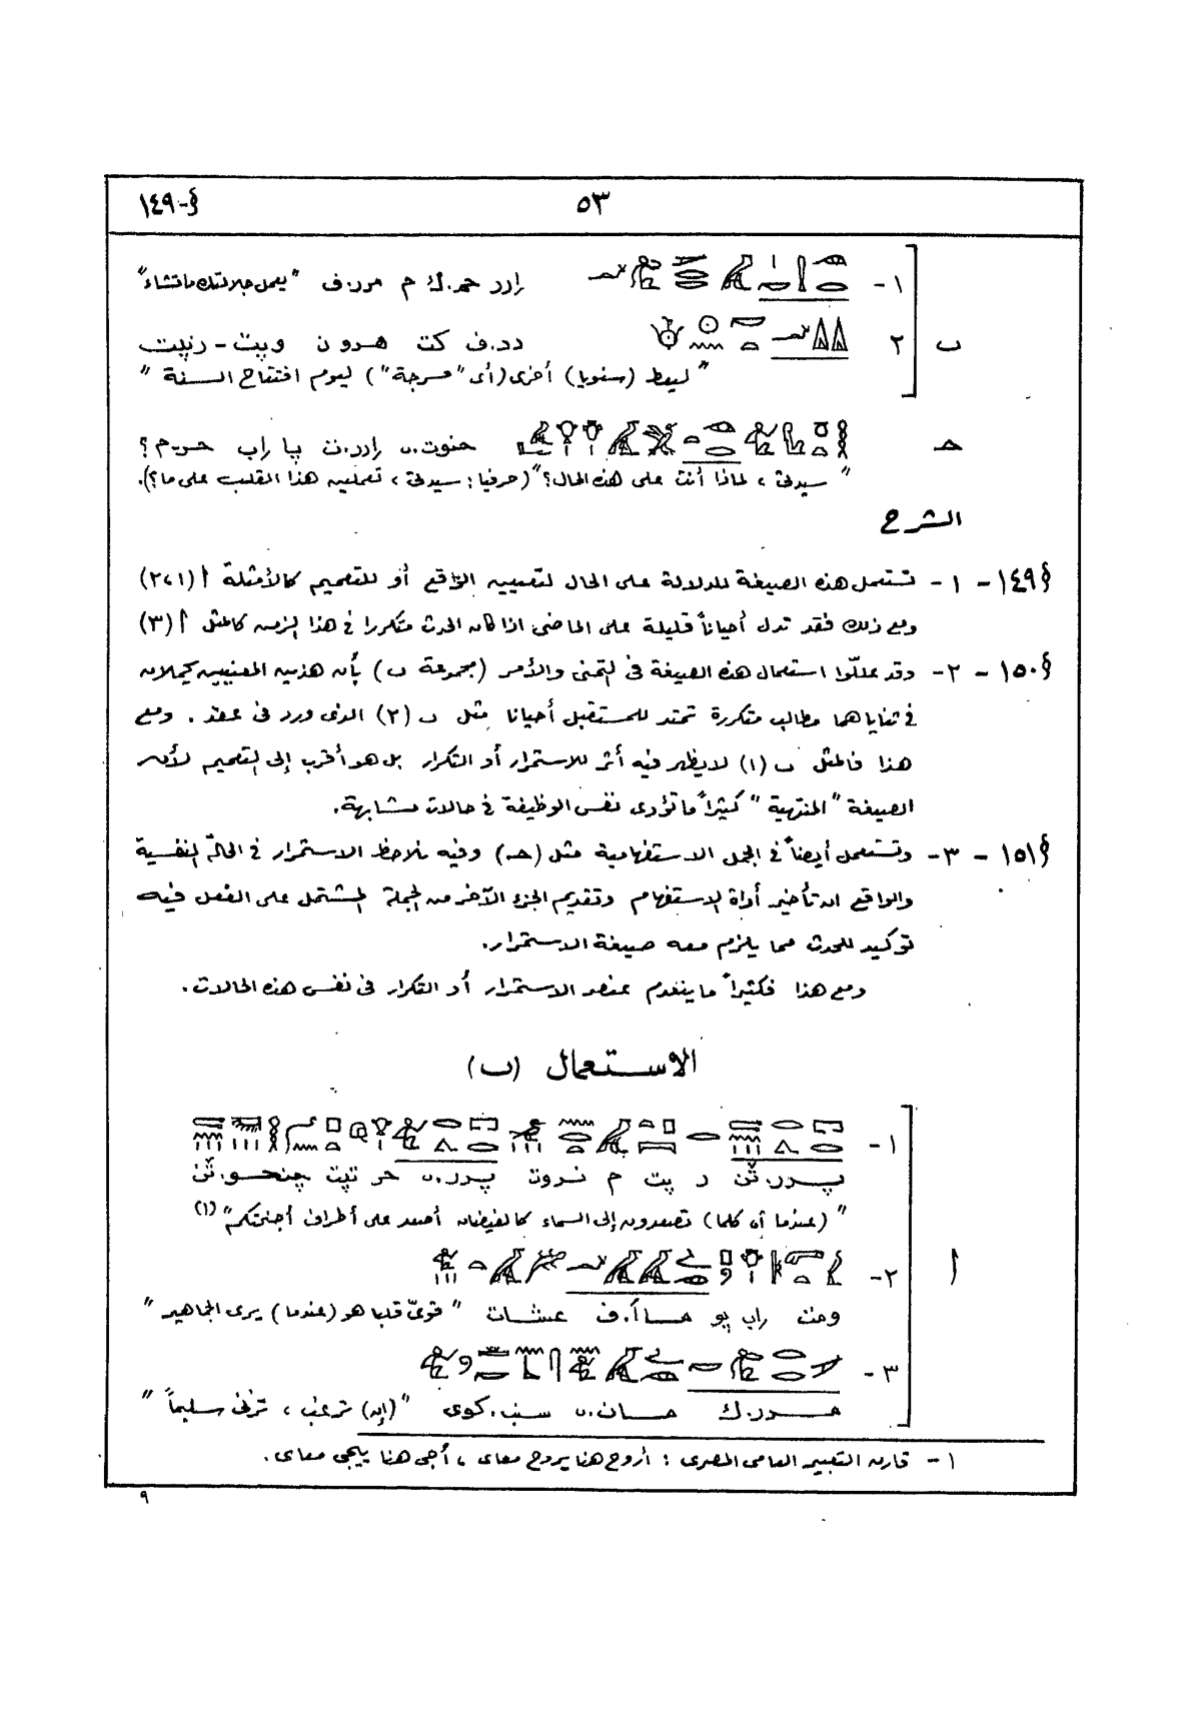 ٥٣
§-١٤٩
١- إرر حم.ك م مرر.ف "يعمل جلالتك ما تشاء"
ب
٢ دد.ف كت هرو ن وپت - رنپت
"ليعط (سنويا) أخرى (أى "مسرجة") ليوم افتتاح السنة"
حـ حنوت.ى إرر.ت پا إب حر-م ؟
"سيدتى ، لماذا أنت على هذه الحال؟" (حرفيا : سيدتى ، تعملين هذا القلب على ما؟).
الشرح
§١٤٩ - ١ - تستعمل هذه الصيغة للدلالة على الحال لتعيين الواقع أو للتعميم كالأمثلة أ (١،٢)
ومع ذلك فقد تدل أحياناً قليلة على الماضى اذا كان الحدث متكررا فى هذا الزمن كالمثل أ (٣)
§١٥٠ - ٢ - وقد عللّوا استعمال هذه الصيغة فى التمنى والأمر (مجموعة ب) بأن هذين المعنيين يحملان
فى ثناياهما مطالب متكررة تمتد للمستقبل أحيانا مثل ب (٢) الذى ورد فى عقد . ومع
هذا فالمثل ب (١) لا يظهر فيه أثر للاستمرار أو التكرار بل هو أقرب إلى التعميم لأن
الصيغة "المنتهية" كثيراً ما تؤدى نفس الوظيفة فى حالات مشابهة.
§١٥١ - ٣ - وتستعمل أيضاً فى الجمل الاستفهامية مثل (حـ) وفيه نلاحظ الاستمرار فى الحالة النفسية
والواقع ان تأخير أداة الاستفهام وتقديم الجزء الآخر من الجملة المشتمل على الفعل فيه
توكيد للحدث مما يلزم معه صيغة الاستمرار.
ومع هذا فكثيراً ما ينعدم عنصر الاستمرار أو التكرار فى نفس هذه الحالات.
الاستعمال (ب)
١-
پرر.ثن ر پت م نروت پرر.ى حر تپت جنحو.ثن
"(عندما أو كلما) تصعدون إلى السماء كالفيضان أصعد على أطراف أجنحتكم" (١)
٢-
أ
ومت إب پو مـاأ.ف عشات "قوىّ قلبا هو (عندما) يرى الجماهير"
٣-
مـرر.ك مـان.ى سنب.كوى "(إن) ترغب ، ترنى سليماً"
١- قارن التعبير العامى المصرى : أروح هنا يروح معاى ، أجى هنا ييجى معاى.
٩